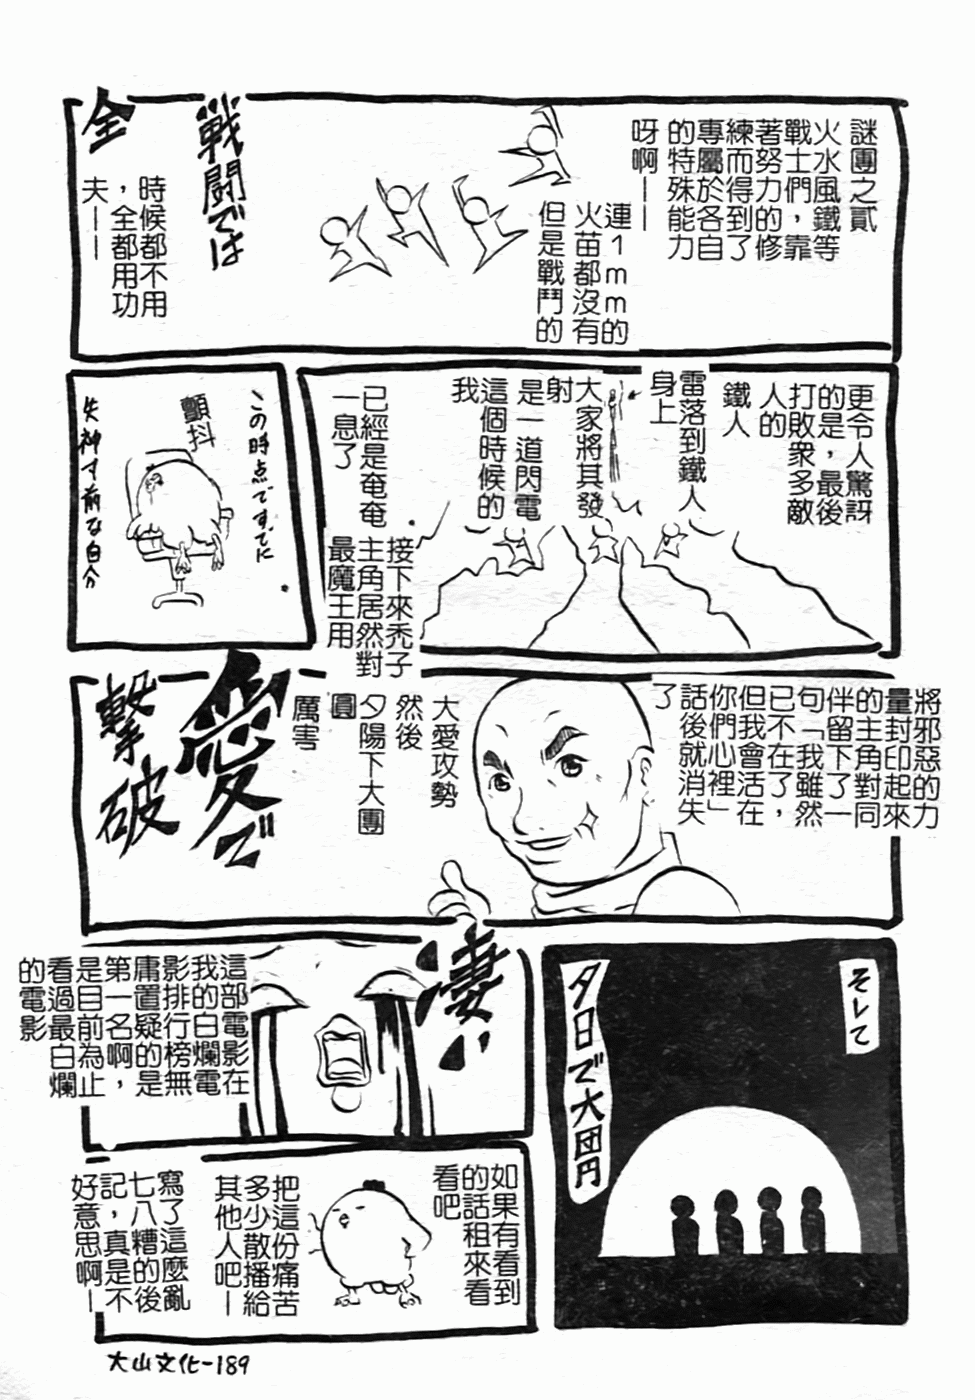 謎團之貳
火水風鐵等
戰士們，靠
著努力的修
練而得到了
專屬於各自
的特殊能力
呀啊——
連1mm的
火苗都沒有
但是戰鬥的
戦闘では
時候都不用
，全都用功
夫——
全
更令人驚訝
的是，最後
打敗眾多敵
人的
鐵人
雷落到鐵人
身上
大家將其發
射
是一道閃電
這個時候的
我
已經是奄奄
一息了
この時点ですでに
顫抖
失神寸前な自分
接下來禿子
主角居然對
最魔王用
大愛攻勢
然後
夕陽下大團
圓
厲害
愛で
撃破
將邪惡的力
量封印起來
的主角對同
伴留下了一
句「我雖然
已不在了，
但我會活在
你們心裡」
話後就消失
了
そして
夕日で大団円
凄い
這部電影在
我的白爛電
影排行榜無
庸置疑的是
第一名啊，
是目前為止
看過最白爛
的電影
如果有看到
的話租來看
看吧
把這份痛苦
多少散播給
其他人吧—
寫了這麼亂
七八糟的後
記，真是不
好意思啊—
大山文化-189